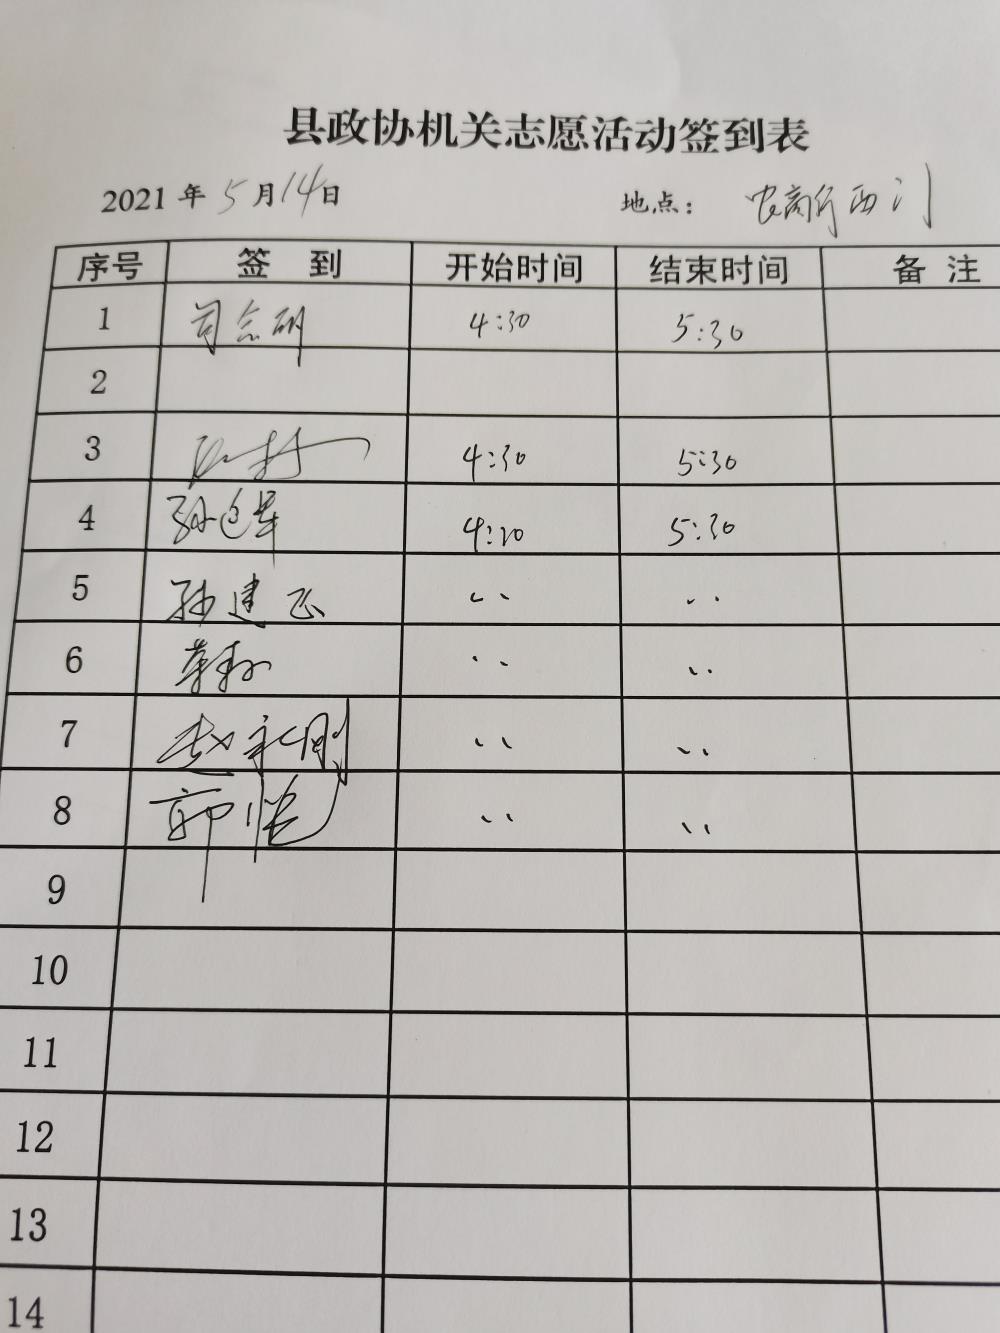 县政协机关志愿活动签到表
2021年5月14日 地点：农商行西门
序号 签到 开始时间 结束时间 备注
1 司念研 4:30 5:30
2
3 4:30 5:30
4 孙迎军 4:20 5:30
5 孙建飞 〃 〃
6 〃 〃
7 赵永刚 〃 〃
8 郭恺 〃 〃
9
10
11
12
13
14